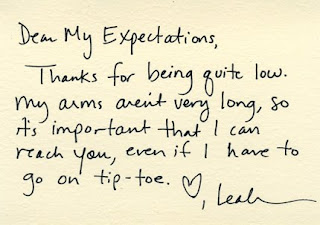 Dear My Expectations,
Thanks for being quite low.
My arms aren't very long, so
it's important that I can
reach you, even if I have to
go on tip-toe. ♡, Leah